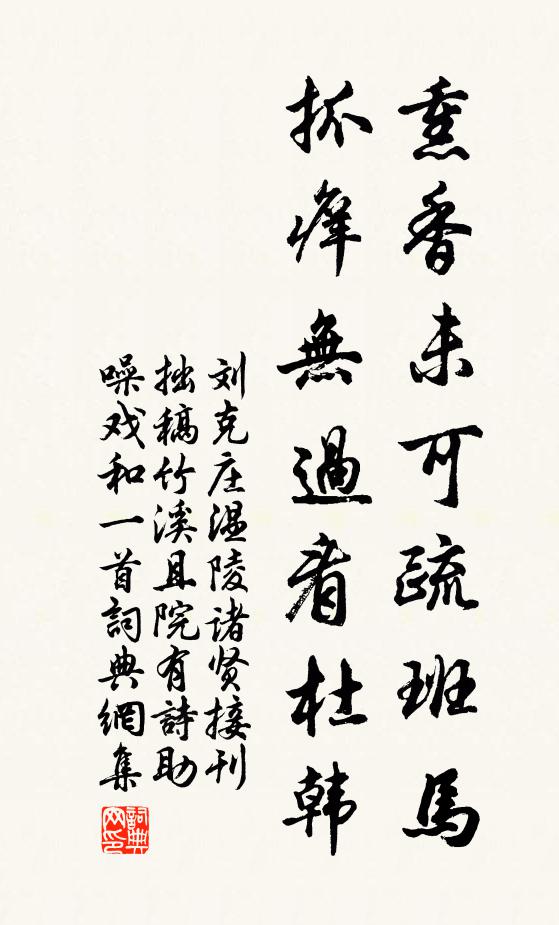 熏香未可疏班馬
抓癢無過看杜韩
刘克庄温陵诸贤接刊
拙稿竹溪且院有詩助
噪戏和一首詞典網集
詞典網印